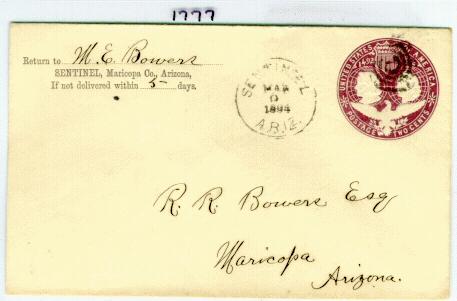 1777
Return to M. E. Bowers
SENTINEL, Maricopa Co., Arizona,
If not delivered within 5 days.
SENTINEL
MAR
1894
ARIZ.
UNITED STATES OF AMERICA
1492
POSTAGE TWO CENTS
R. R. Bowers Esq
Maricopa
Arizona.